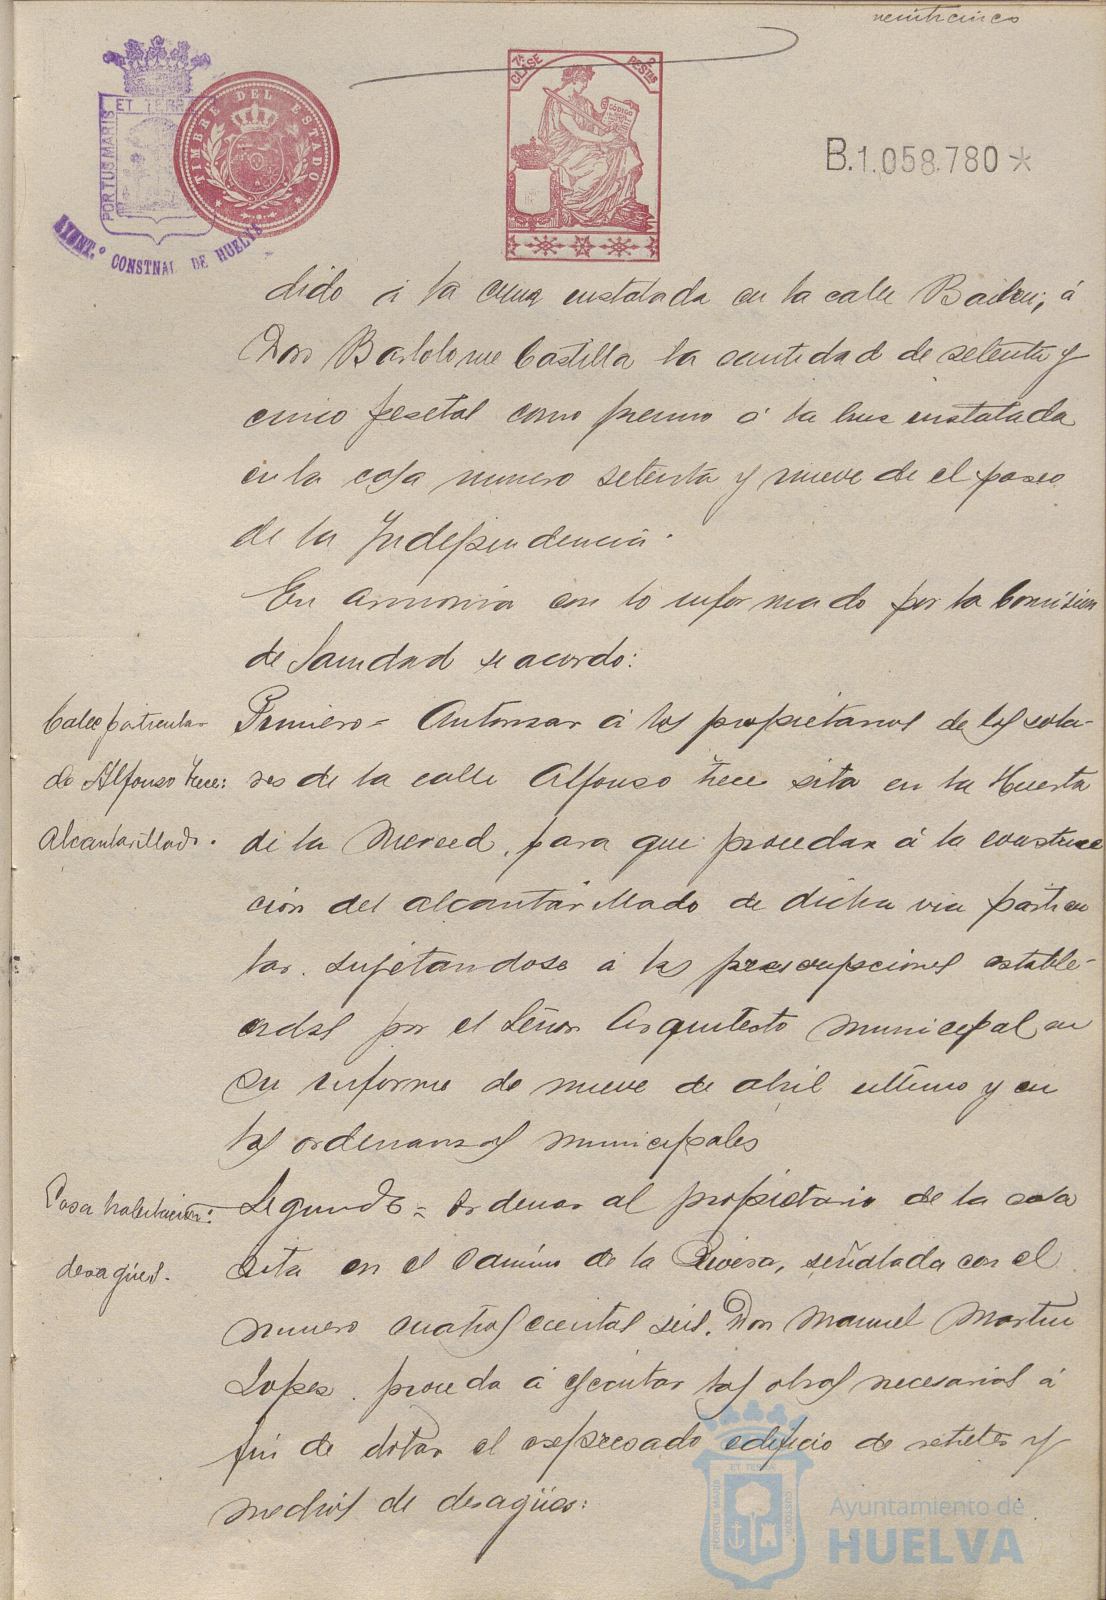 veinticinco
PORTUS MARIS
ET TERR
AYUNT.º CONSTNAL DE HUELVA
TIMBRE DEL ESTADO
7ª CLASE
2 PESTAS
CODIGO
B.1.058.780*
dido á la cruz instalada en la calle Bailen; á
Don Bartolome Castilla la cantidad de setenta y
cinco pesetas como premio á la cruz instalada
en la casa numero setenta y nueve de el paseo
de la Independencia.
En armonia con lo informado por la Comision
de Sanidad se acordo:
Calle particular
de Alfonso trece:
alcantarillado.
Primero = Autorizar á los propietarios de los sola-
res de la calle Alfonso trece sita en la Huerta
de la Merced, para que procedan á la construc
ción del alcantarillado de dicha via particu
lar. sujetandose á las prescripciones estable-
cidas por el Señor Arquitecto municipal en
su informe de nueve de abril ultimo y en
las ordenanzas municipales
Casa habitación:
desagües.
Segundo = Ordenar al propietario de la casa
sita en el Camino de la Rivera, señalada con el
numero cuatrocientos seis. Don Manuel Martin
Lopez. proceda á ejecutar las obras necesarias á
fin de dotar el expresado edificio de retretes y
medios de desagües:
PORTUS MARIS
ET TERRAE
CUSTODIA
Ayuntamiento de
HUELVA